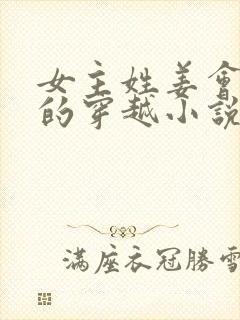 女主姓姜會
的穿越小說
滿座衣冠勝雪